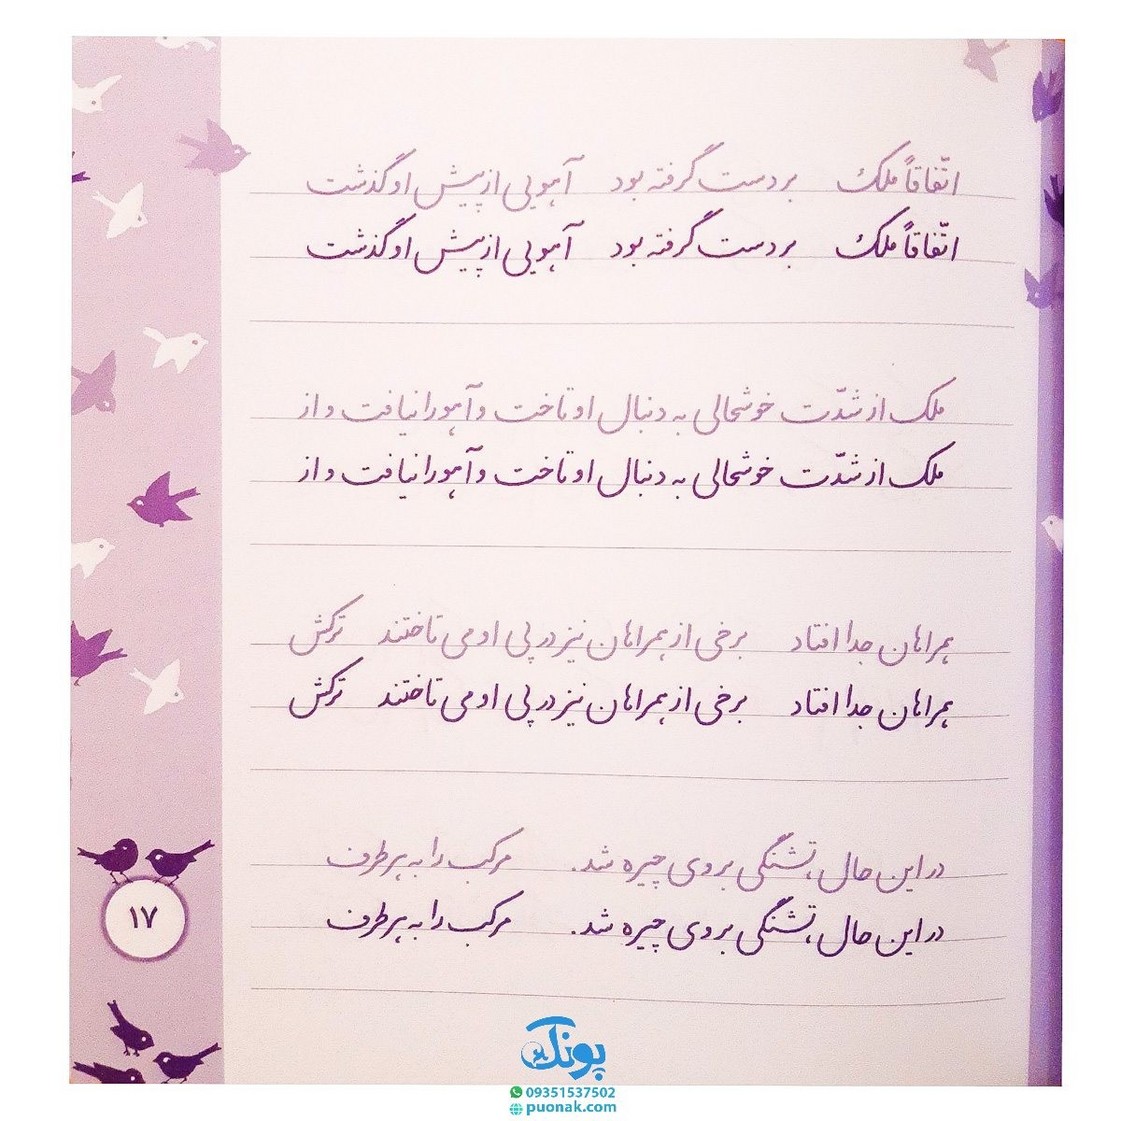 اتّفاقاً ملک بر دست گرفته بود آهویی از پیش او گذشت
اتّفاقاً ملک بر دست گرفته بود آهویی از پیش او گذشت
ملک از شدّت خوشحالی به دنبال او تاخت و آهو را نیافت و از
ملک از شدّت خوشحالی به دنبال او تاخت و آهو را نیافت و از
همراهان جدا افتاد برخی از همراهان نیز در پی او می تاختند ترکش
همراهان جدا افتاد برخی از همراهان نیز در پی او می تاختند ترکش
در این حال، تشنگی بر وی چیره شد. مرکب را به هر طرف
در این حال، تشنگی بر وی چیره شد. مرکب را به هر طرف
۱۷
پونک
09351537502
puonak.com